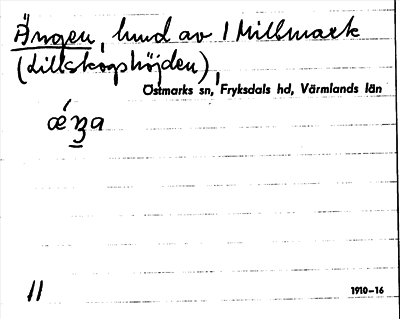 Ängen, hmd av 1 Millmark
(Lillskogshöjden),
Östmarks sn, Fryksdals hd, Värmlands län
ǽŋa
11
1910-16